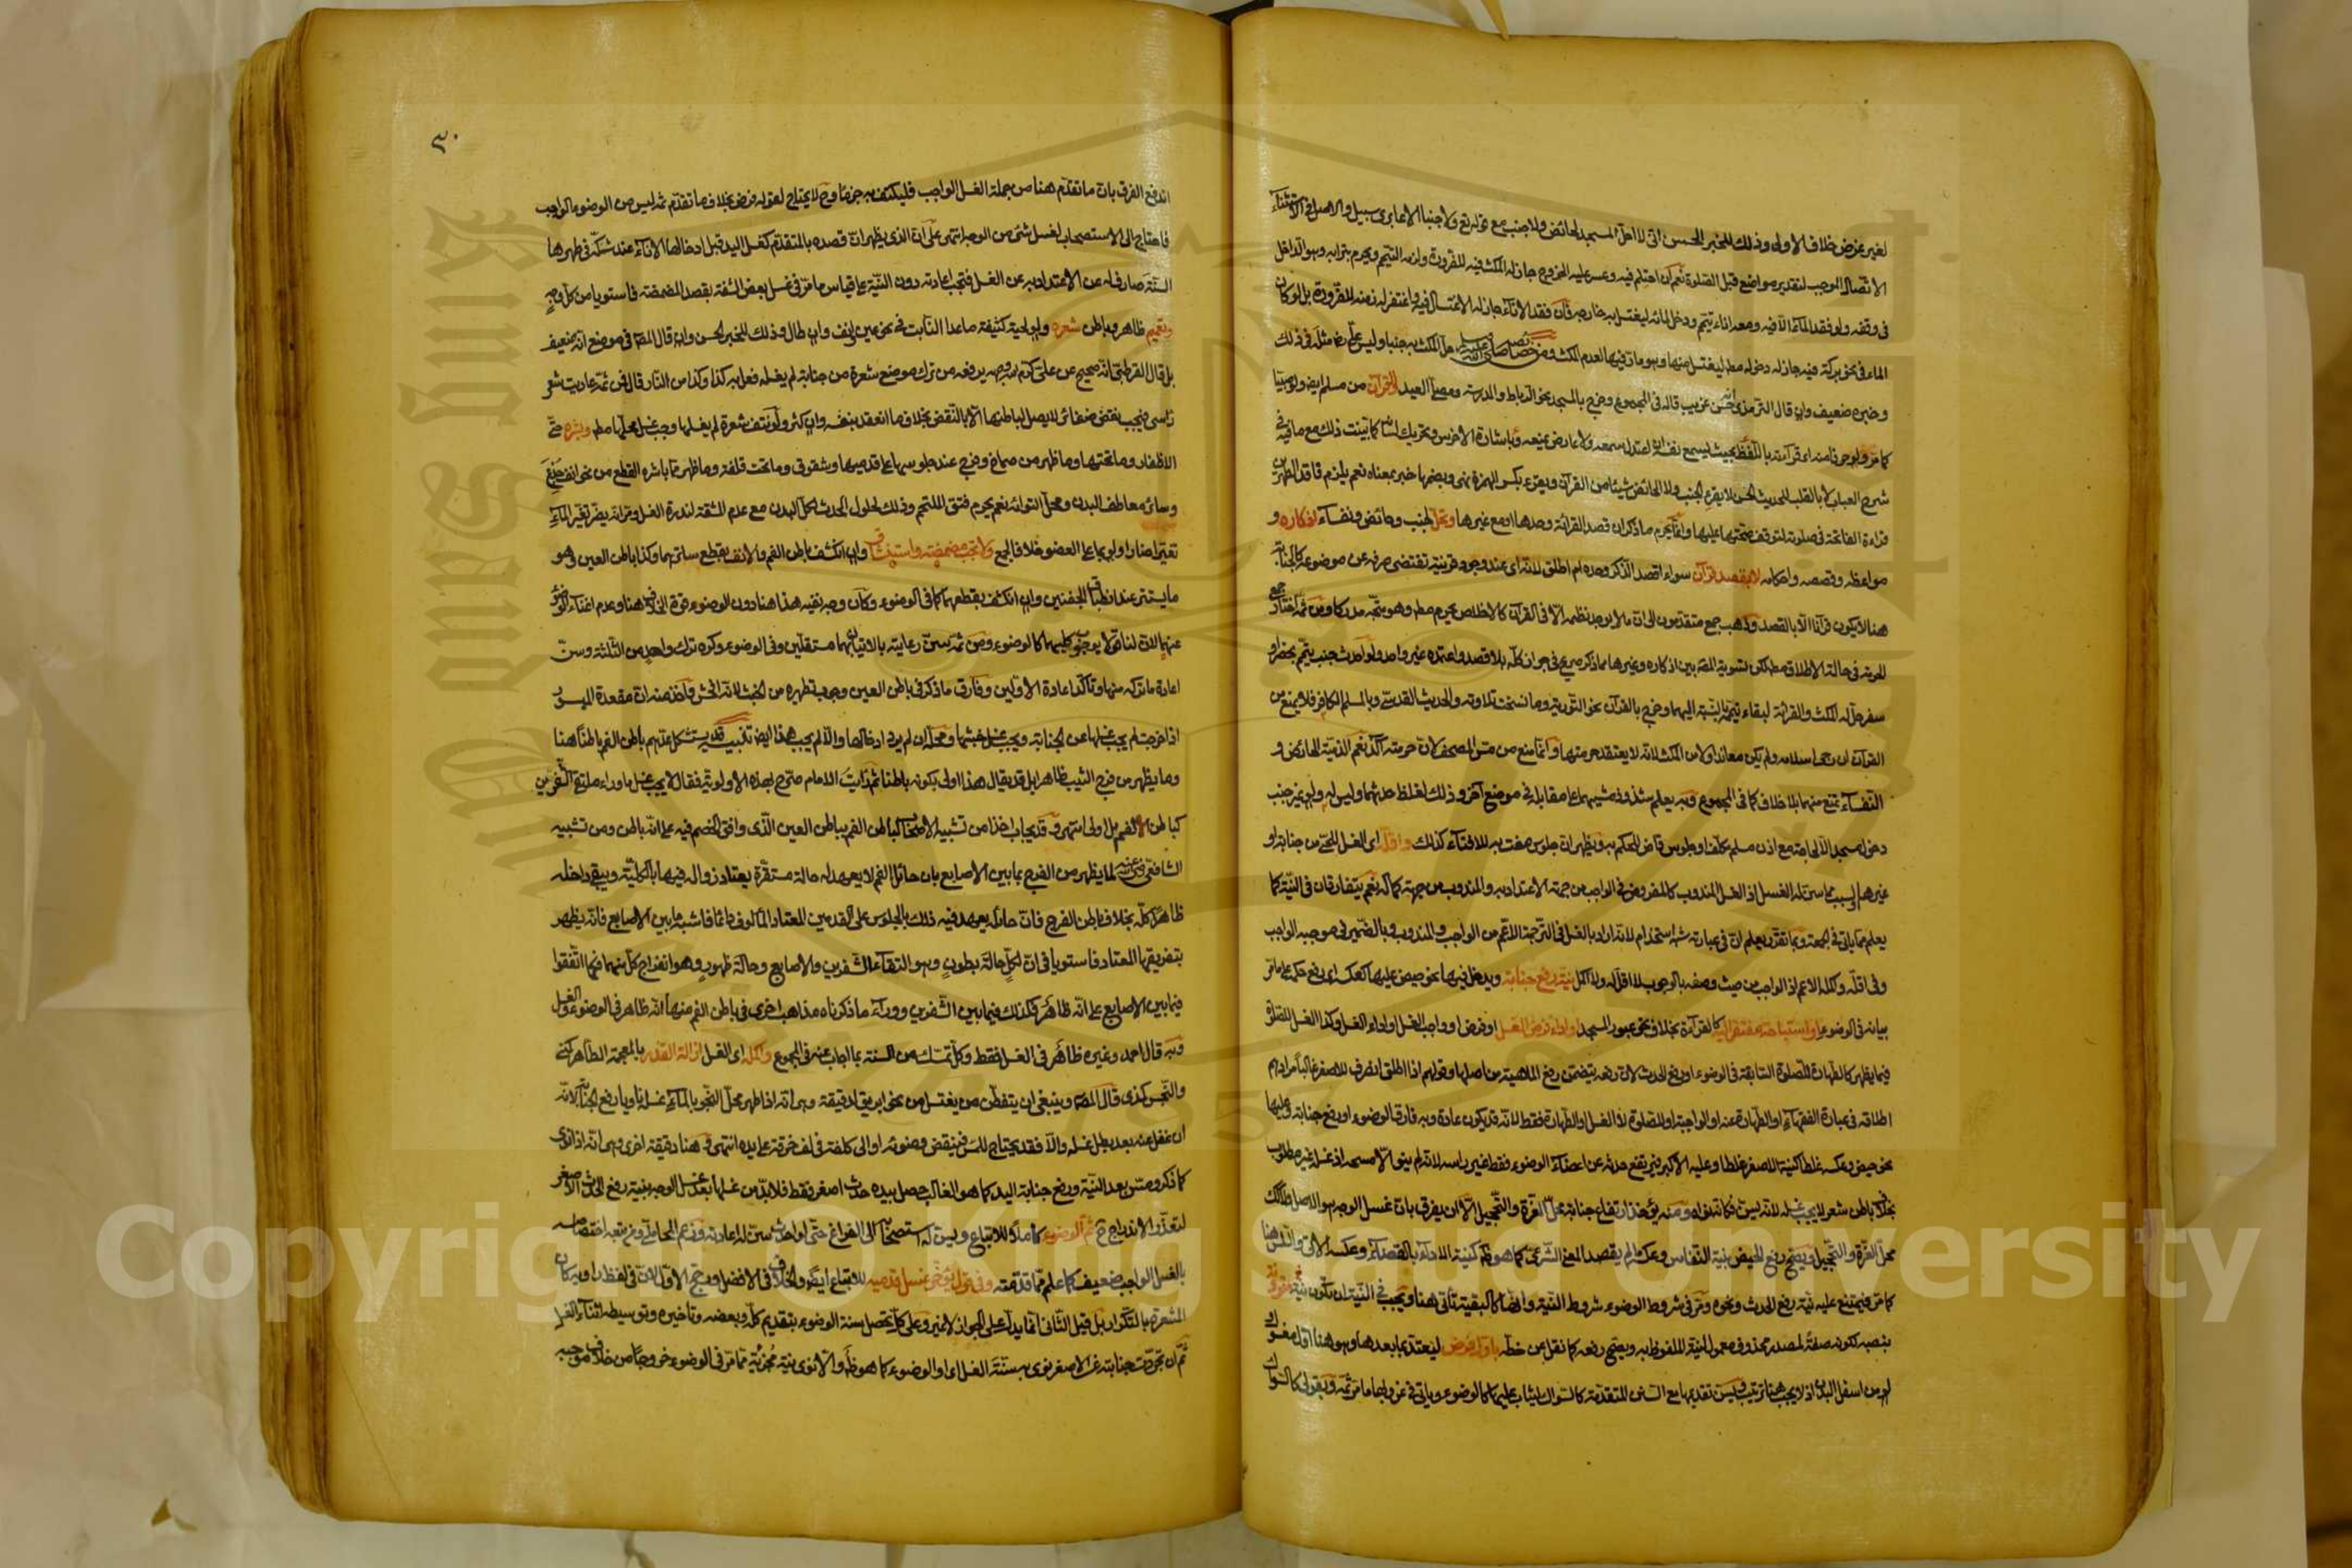 لغير غرض خلاف الاولى وذلك للخبر الحسن انى لا احل المسجد لحائض ولا جنب مع قوله تع ولا جنبا الا عابرى سبيل والاصل فى الاستثناء
الاتصال الموجب لتقدير مواضع قبل الصلوة نعم ان احتلم فيه وعسر عليه الخروج جاز له المكث فيه للضرورة ولزمه التيمم ويحرم بترابه وهو الداخل
فى وقفه ولو فقد الماء الا فيه ومعه اناء تيمم ودخل لملئه ليغتسل به خارجه فان فقد الاناء جاز له الاغتسال فيه واغتفر له زمنه للضرورة بل لو كان
الماء فى نحو بركة فيه جاز له دخوله مط ليغتسل منها وهو مار فيها لعدم المكث ومن خصائصه صلى الله عليه وسلم حل المكث به جنبا وليس على رض مثله فى ذلك
وخبره ضعيف وان قال الترمذى حسن غريب قاله فى المجموع وخرج بالمسجد نحو الرباط والمدرسة ومصلى العيد والقرآن من مسلم ايض ولو صبيا
كما مر ولو حرفا منه اى قرآءته باللفظ بحيث يسمع نفسه ان اعتدل سمعه ولا عارض يمنعه وباشارة الاخرس وتحريك لسانه كما بينت ذلك مع ما فيه فى
شرح العباب لا بالقلب للحديث الحسن لا يقرء الجنب ولا الحائض شيئا من القرآن ويقرء بكسر الهمزة نهى وبضمها خبر بمعناه نعم يلزم فاقد الطهورين
قراءة الفاتحة فى صلوته لتوقف صحتها عليها وانما يحرم ما ذكر ان قصد القرائة وحدها او مع غيرها وتحل لجنب وحائض ونفساء اذكاره و
مواعظه وقصصه واحكامه لا بقصد قرآن سواء اقصد الذكر وحده ام اطلق لانه اى عند وجود قرينة تقتضى صرفه عن موضوعه كالجنابة
هنا لا يكون قرآنا الا بالقصد وذهب جمع متقدمون الى ان ما لا يوجد نظمه الا فى القرآن كالاخلاص يحرم مط وهو متجه مدركا ومن ثم اختار جمع
الحرمة فى حالة الاطلاق مط لكن تسوية المص بين اذكاره وغيرها مما ذكر صريح فى جواز كله بلا قصد واعتمده غير واحد ولو احدث جنب تيمم بحضر او
سفر حل له المكث والقرائة لبقاء تيممه بالنسبة اليهما وخرج بالقرآن نحو التورية وما نسخت تلاوته والحديث القدسى وبالمسلم الكافر فلا يمنع من
القرآن ان رجى اسلامه ولم يكن معاندا ولا من المكث لانه لا يعتقد حرمتها وانما منع من مس المصحف لان حرمته آكد نعم الذمية الحائض و
النفساء تمنع منهما بلا خلاف كما فى المجموع وبه يعلم شذوذ مشيهما على مقابله فى موضع آخر وذلك لغلظ حدثهما وليس له ولو غير جنب
دخول مسجد الا لحاجة مع اذن مسلم مكلف او جلوس قاض للحكم به ويظهر ان جلوس مفت به للافتاء كذلك واقله اى الغسل للحى من جنابة او
غيرهما لسبب مما سن له الغسل اذ الغسل المندوب كالمفروض فى الواجب من جهة الاعتداد به والمندوب من جهة كماله نعم يتفارقان فى النية كما
يعلم مما ياتى فى الجمعة وبما تقرر يعلم ان فى عبارته شبه استخدام لانه اراد بالغسل فى الترجمة الاعم من الواجب والمندوب وبالضمير فى موجبه الواجب
وفى اقله وكله الاعم اذ الواجب من حيث وصفه بالوجوب لا اقل له ولا اكمل نية رفع جنابة ويدخل فيها نحو حيض عليها كعكسه اى رفع حكمه على ما مر
بيانه فى الوضوء او استباحة مفتقر اليه كالقرآءة بخلاف نحو عبور المسجد او اداء فرض الغسل او فرض او واجب الغسل او اداء الغسل وكذا الغسل للصلوة
فيما يظهر كالطهارة للصلوة السابقة فى الوضوء او رفع الحدث لان رفعه يتضمن رفع الماهية من اصلها وقولهم اذا اطلق انصرف للاصغر غالبا مرادهم
اطلاقه فى عبارة الفقهاء او الطهارة عنه او الواجبة او للصلوة لا الغسل والطهارة فقط لانه قد يكون عادة وبه فارق الوضوء او رفع جنابة وعليها
نحو حيض وعكسه غلطا كنية الاصغر غلطا وعليه الاكبر فيرتفع حدثه عن اعضاء الوضوء فقط غير راسه لانه لم ينو الا مسحه اذ غسله غير مطلوب
بخلاف باطن شعر لا يجب غسله لانه يسن فكانه نواه ومنه يؤخذ ارتفاع جنابة محل الغرة والتحجيل الا ان يفرق بان غسل الوجه هو الاصل ولا كذلك
محل الغرة والتحجيل ويصح رفع الحيض بنية النفاس وعكسه ما لم يقصد المعنى الشرعى كما هو ظ كنية الاداء بالقضاء وعكسه الاتى
كما مر فيمتنع عليه نية رفع الحدث ونحوه ومر فى شروط الوضوء شروط النية وانها كالبقية تاتى هنا ويجب فى النية ان تكون نية مقرونة
بنصبه لكونه صفة لمصدر محذوف معمول لنية الملفوظ به ويصح رفعه كما نقل من خطه باول فرض ليعتد بما بعدها وهو هنا اول مغسول
او من اسفل البدن اذ لا يجب هنا ترتيب ويسن تقديمها مع السنن المتقدمة كالسواك ليثاب عليها كالوضوء وياتى فى عزوبها ما مر ثمه وبقولى كالسواك
٣٠
اندفع الفرق بان ما تقدم هنا من جملة الغسل الواجب فليكتف به جزما وح لا يحتاج لقوله فرض بخلاف ما تقدم ثم ليس من الوضوء الواجب
فاحتاج الى الاستصحاب لغسل شئ من الوجه انتهى على ان الذى يظهر ان قصده بالمتقدم كغسل اليد قبل ادخالها الاناء عند شكه فى طهرها
السنة صارف له عن الاعتداد به عن الغسل فتجب اعادته دون النية على قياس ما مر فى غسل بعض الشفة بقصد المضمضة فاستويا من كل وجه
وتعميم ظاهر وباطن شعره ولو لحية كثيفة ما عدا النابت فى نحو عين وانف وان طال وذلك للخبر الحسن وان قال المص فى موضع انه ضعيف
بل قال القرطبى انه صحيح عن على كرم الله وجهه يرفعه من ترك موضع شعرة من جنابة لم يغسله فعل به كذا وكذا من النار قال فمن ثم عاديت شعر
راسى فيجب نقض ضفائر لا يصل لباطنها الا بالنقض بخلاف ما انعقد بنفسه وان كثر ولو نتف شعرة لم يغسلها وجب غسل محلها مط وبشره حتى
الاظفار وما تحتها وما ظهر من صماخ وفرج عند جلوسها على قدميها وشقوق وما تحت قلفة وما ظهر مما باشره القطع من نحو انف جدع
وسائر معاطف البدن ومحل التوائه نعم يحرم فتق الملتحم وذلك لحلول الحدث لكل البدن مع عدم المشقة لندرة الغسل ومر انه يضر تغير الماء
تغيرا ضارا ولو بما على العضو خلافا لجمع ولا تجب مضمضة واستنشاق وان انكشف باطن الفم والانف بقطع ساترهما وكذا باطن العين وهو
ما يستتر عند انطباق الجفنين وان انكشف بقطعهما كما فى الوضوء وكان وجه نفيه هذا هنا دون الوضوء قوة الخلاف هنا وعدم اغناء الوضوء
عنها لان لنا قولا بوجوب كليهما كالوضوء ومن ثم سن رعايته بالاتيان بهما مستقلين وفى الوضوء وكره ترك واحد من الثلثة وسن
اعادة ما تركه منها وتاكد اعادة الاولين وفارق ما ذكر فى باطن العين وجوب تطهيره من الخبث لانه افحش واخذ منه ان مقعدة المبسور
اذا خرجت لم يجب غسلها عن الجنابة ويجب غسل خبثها ومحله ان لم يرد ادخالها والا لم يجب هذا ايض تنبيه قد يستشكل عدهم باطن الفم باطنا هنا
وما يظهر من فرج الثيب ظاهرا بل قد يقال هذا اولى بكونه باطنا ثم رايت الامام صرح بهذه الاولوية فقال لا يجب غسل ما وراء ملتقى الشفرين
كباطن الفم بل اولى انتهى وقد يجاب اخذا من تشبيه الاصحاب لباطن الفم بباطن العين الذى وافق الخصم فيه على انه باطن ومن تشبيه
الشافعى رضى عنه لما يظهر من الفرج بما بين الاصابع بان حائل الفم لا يعهد له حالة مستقرة يعتاد زواله فيها بالكلية ويبقى داخله
ظاهرا كله بخلاف باطن الفرج فان حائله يعهد فيه ذلك بالجلوس على القدمين المعتاد المألوف دائما فاشبه ما بين الاصابع فانه يظهر
بتفريقها المعتاد فاستويا فى ان لكل حالة بطون وهو التقاء الشفرين والاصابع وحالة ظهور وهو انفراج كل منهما فكما اتفقوا
فيما بين الاصابع على انه ظاهر فكذلك فيما بين الشفرين ووراء ما ذكرناه مذاهب اخرى فى باطن الفم منها انه ظاهر فى الوضوء والغسل
وبه قال احمد وغيره ظاهر فى الغسل فقط وكل تمسك من السنة بما اجاب عنه فى المجموع واكمله اى الغسل ازالة القذر بالمعجمة الطاهر كمنى
والنجس كمذى قال المص وينبغى ان يتفطن من يغتسل من نحو ابريق لدقيقة وهى انه اذا طهر محل النجو بالماء غسله ناويا رفع الجنابة لانه
ان غفل عنه بعد بطل غسله والا فقد يحتاج للمس فينقض وضوئه او الى كلفة فى لف خرقة على يده انتهى وهنا دقيقة اخرى وهى انه اذا نوى
كما ذكر ومس بعد النية ورفع جنابة اليد كما هو الغالب حصل بيده حدث اصغر فقط فلا بد من غسلها بعد غسل الوجه بنية رفع الحدث الاصغر
لتعذر الاندراج ح ثم الوضوء كاملا للاتباع ويسن له استصحابه الى الفراغ حتى لو احدث سن له اعادته وزعم المحاملى وغيره اختصاصه
بالغسل الواجب ضعيف كما علم مما قدمته وفى قول يؤخر غسل قدميه للاتباع ايض والخلاف فى الافضل ورجح الاول لان فى لفظ راويه كان
المشعرة بالتكرار بل قيل الثانى انما يدل على الجواز لا غير وعلى كل تحصل سنة الوضوء بتقديم كله وبعضه وتاخيره وتوسيطه اثناء الغسل
ثم ان تجردت جنابته عن الاصغر نوى به سنة الغسل اى او الوضوء كما هو ظ والا نوى نية مجزئة مما مر فى الوضوء خروجا من خلاف موجبه
Copyright © King Saud University
King Saud University
1957